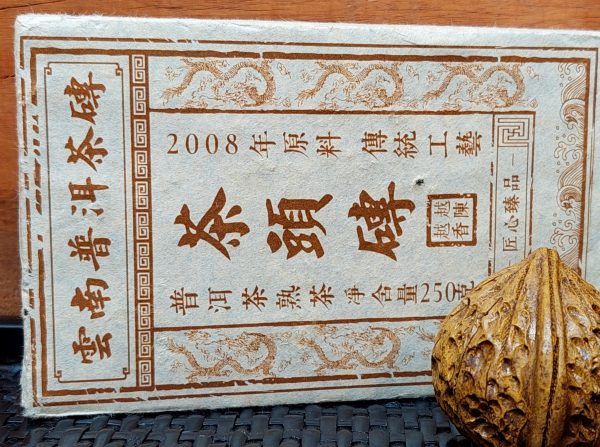 雲南普洱茶磚
2008年原料 傳統工藝
茶頭磚
越陳越香
普洱茶熟茶淨含量250克
匠心臻品